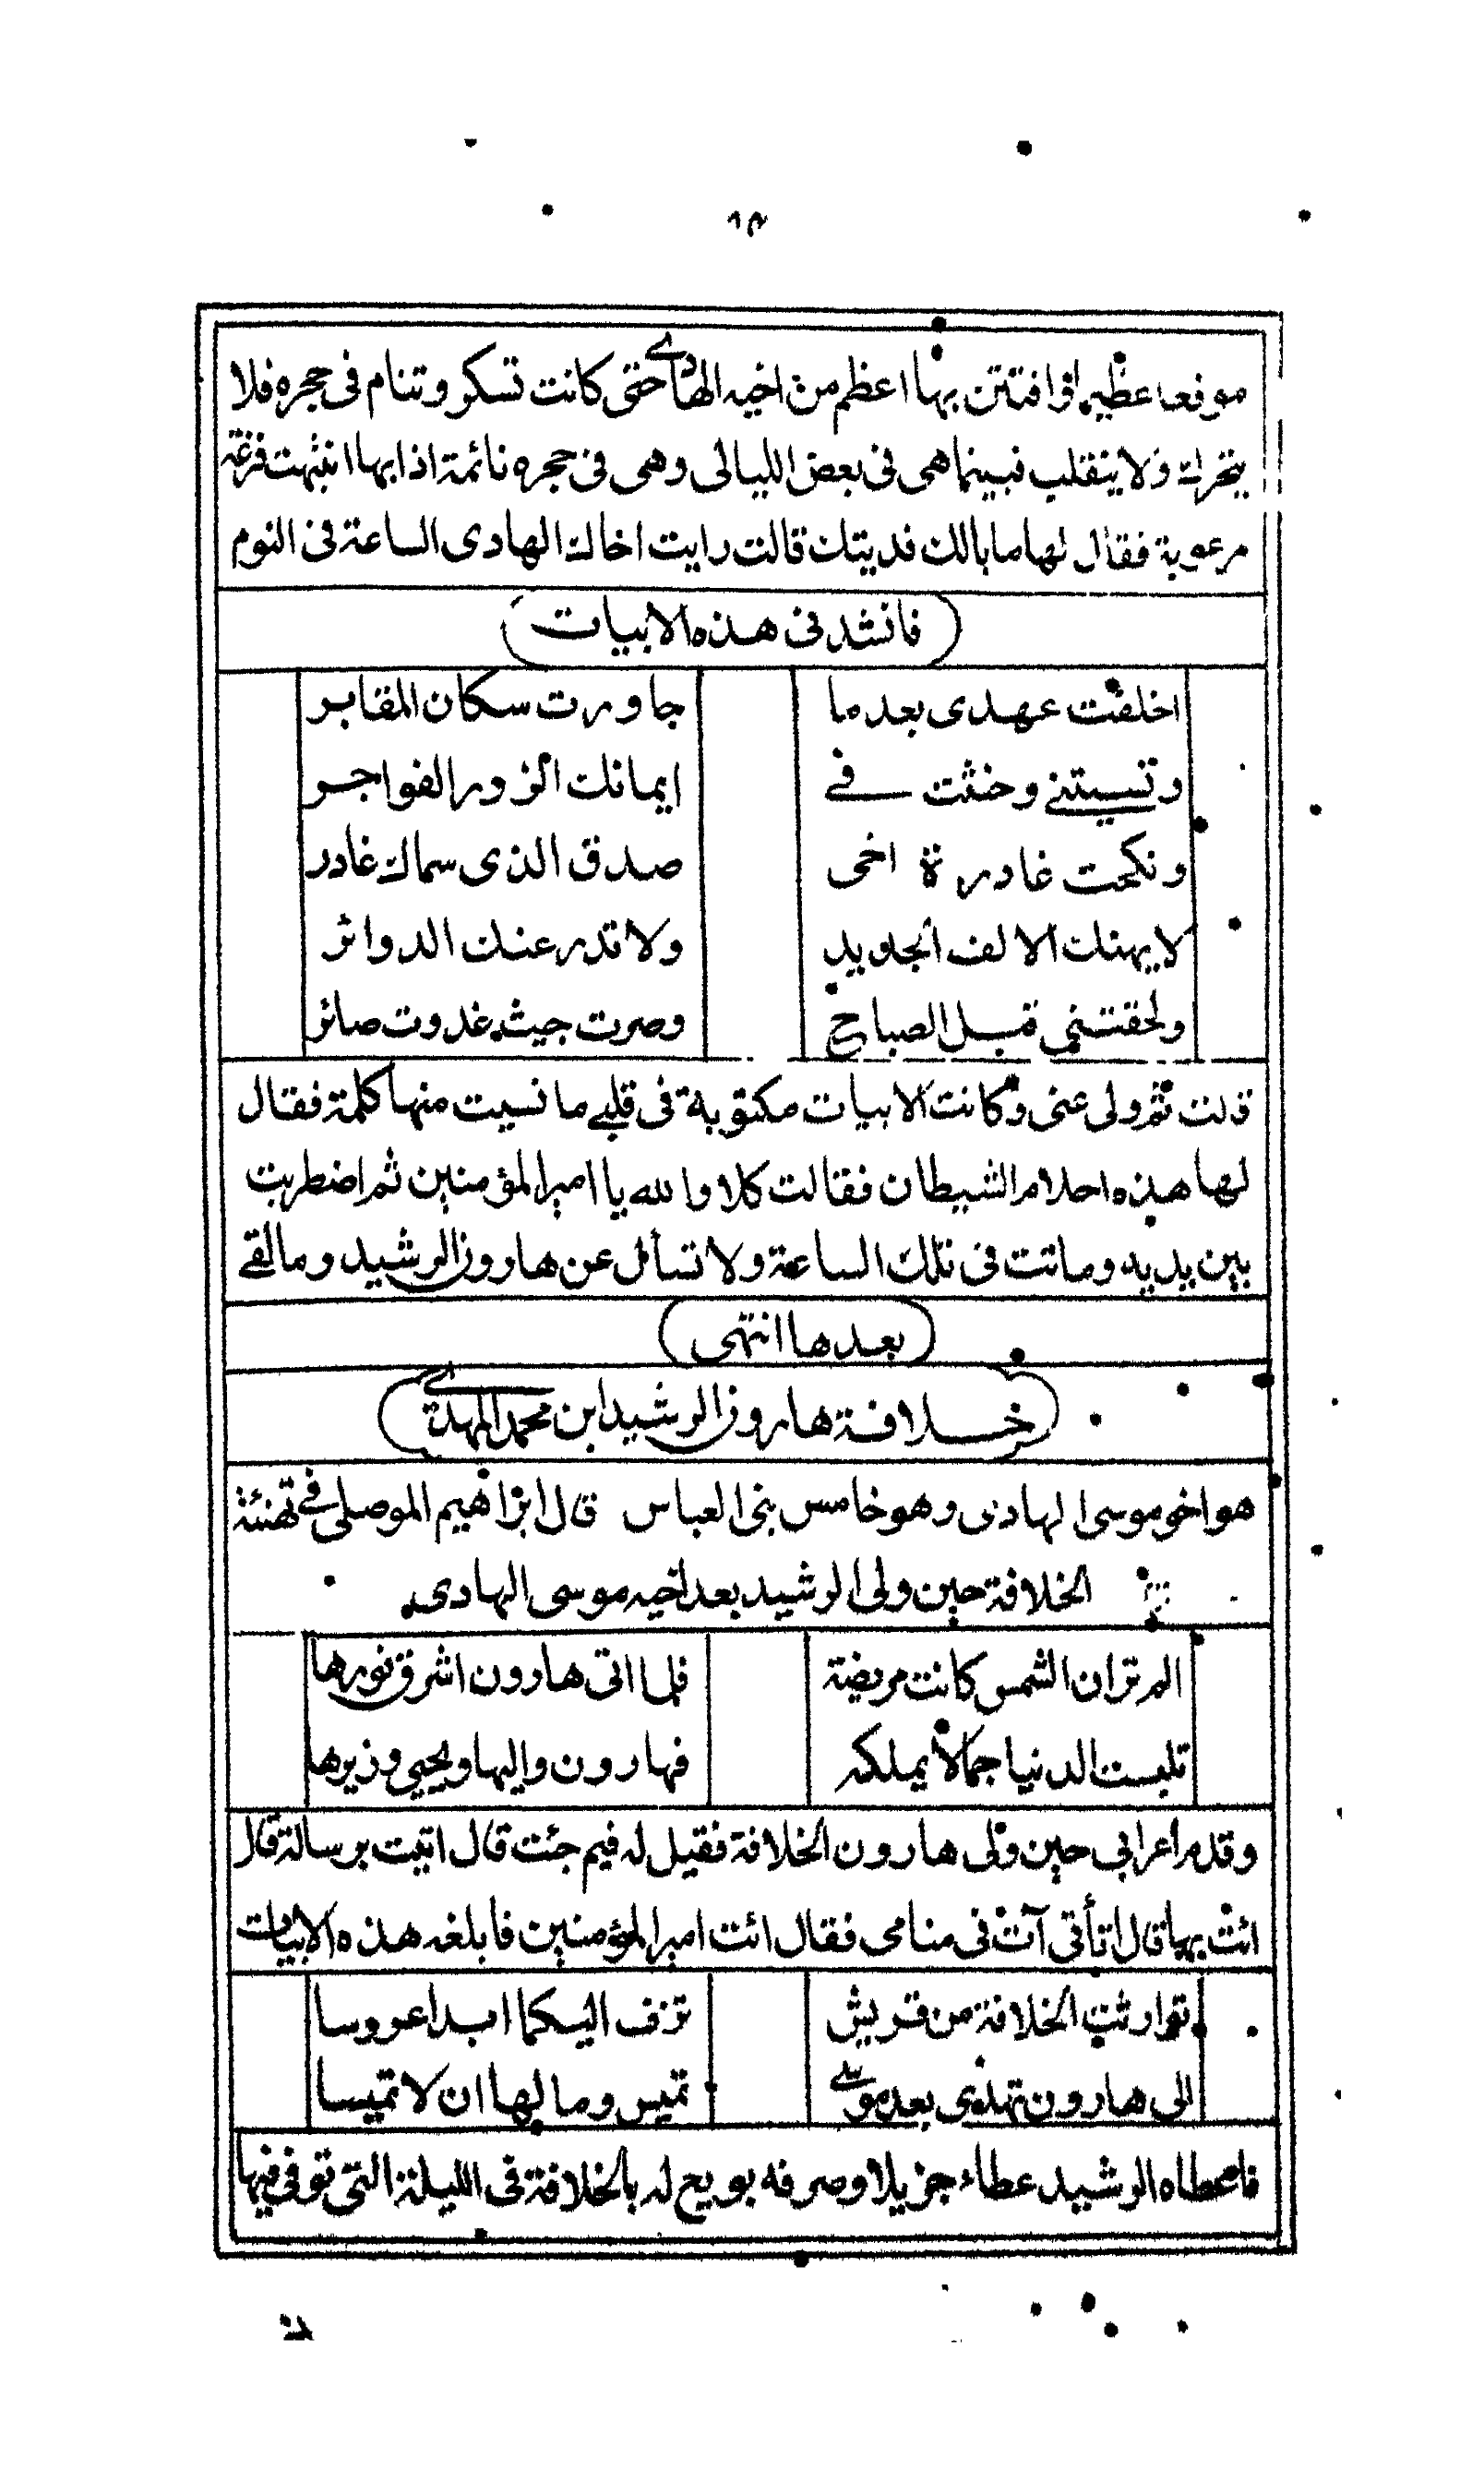 ١٣
موقعا عظيما وافتتن بها اعظم من اخيه الهادي حتى كانت تسكر وتنام فى حجره فلا
يتحرك ولا ينقلب فبينما هى فى بعض الليالى وهى فى حجره نائمة اذا بها انتبهت فزعة
مرعوبة فقال لها ما بالك فديتك قالت رايت اخاك الهادى الساعة فى النوم
فانشدنى هذه الابيات
اخلفت عهدى بعد ما جاورت سكان المقابر
ونسيتنى وحنثت فى ايمانك الزور الفواجر
ونكحت غادرة اخى صدق الذى سماك غادر
لا يهنك الالف الجديد ولا تدر عنك الدوائر
ولحقتنى قبل الصباح وصرت حيث غدوت صائر
قالت ثم ولى عنى وكانت الابيات مكتوبة فى قلبى ما نسيت منها كلمة فقال
لها هذه احلام الشيطان فقالت كلا والله يا امير المؤمنين ثم اضطربت
بين يديه وماتت فى تلك الساعة ولا تسأل عن هارون الرشيد وما لقى
بعدها انتهى
خلافة هارون الرشيد ابن محمد المهدي
هو اخو موسى الهادى وهو خامس بنى العباس قال ابراهيم الموصلى فى تهنئة
الخلافة حين ولى الرشيد بعد اخيه موسى الهادى
الم تر ان الشمس كانت مريضة فلما اتى هارون اشرق نورها
تلبست الدنيا جمالا بملكه فهارون واليها ويحيى وزيرها
وقدم أعرابى حين ولى هارون الخلافة فقيل له فيم جئت قال اتيت برسالة قال
ائت بها قال اتأنى آت فى منامى فقال ائت امير المؤمنين فابلغه هذه الابيات
توارثت الخلافة من قريش تزف اليكما ابدا عروسا
الى هارون تهدى بعد موسى تميس وما لها ان لا تميسا
فاعطاه الرشيد عطاء جزيلا وصرفه بويع له بالخلافة فى الليلة التى توفى فيها